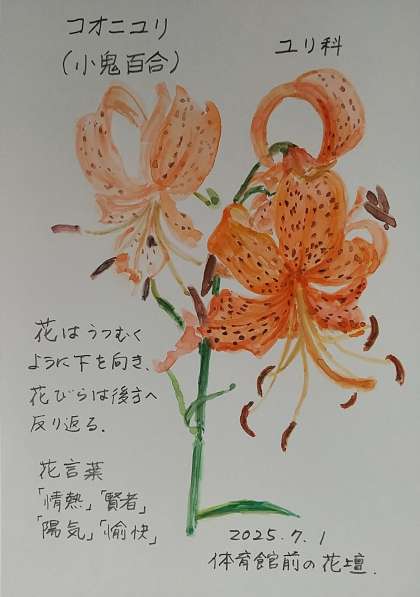 コオニユリ
(小鬼百合)
ユリ科
花はうつむく
ように下を向き、
花びらは後方へ
反り返る.
花言葉
「情熱」「賢者」
「陽気」「愉快」
2025.7.1
体育館前の花壇.